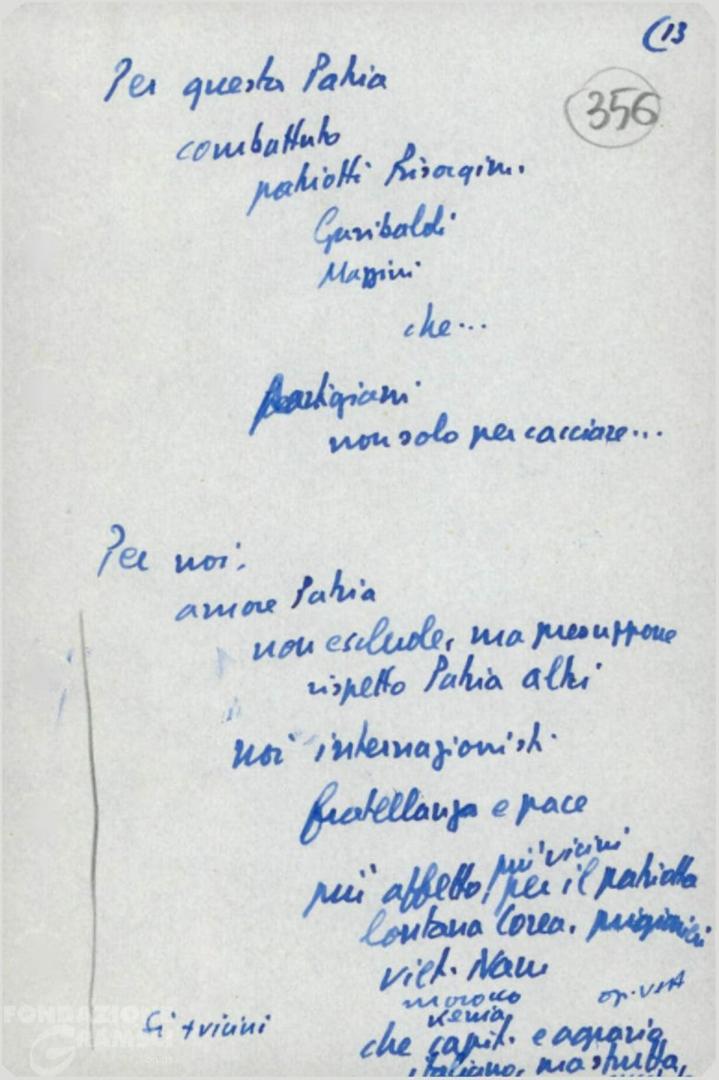 (13
356
Per questa Patria
combattuto
patriotti Risorgim.
Garibaldi
Mazzini
che...
partigiani
non solo per cacciare...
Per noi.
amore Patria
non esclude, ma presuppone
rispetto Patria altri
noi internazionisti
fratellanza e pace
più vicini
più affetto, per il patriotta
lontana Corea. prigionieri
viet. Nam
morocco
Kenia
op. USA
Si + vicini
che capit. e agraria
italiano, ma
FONDAZIONE
GRAMSCI